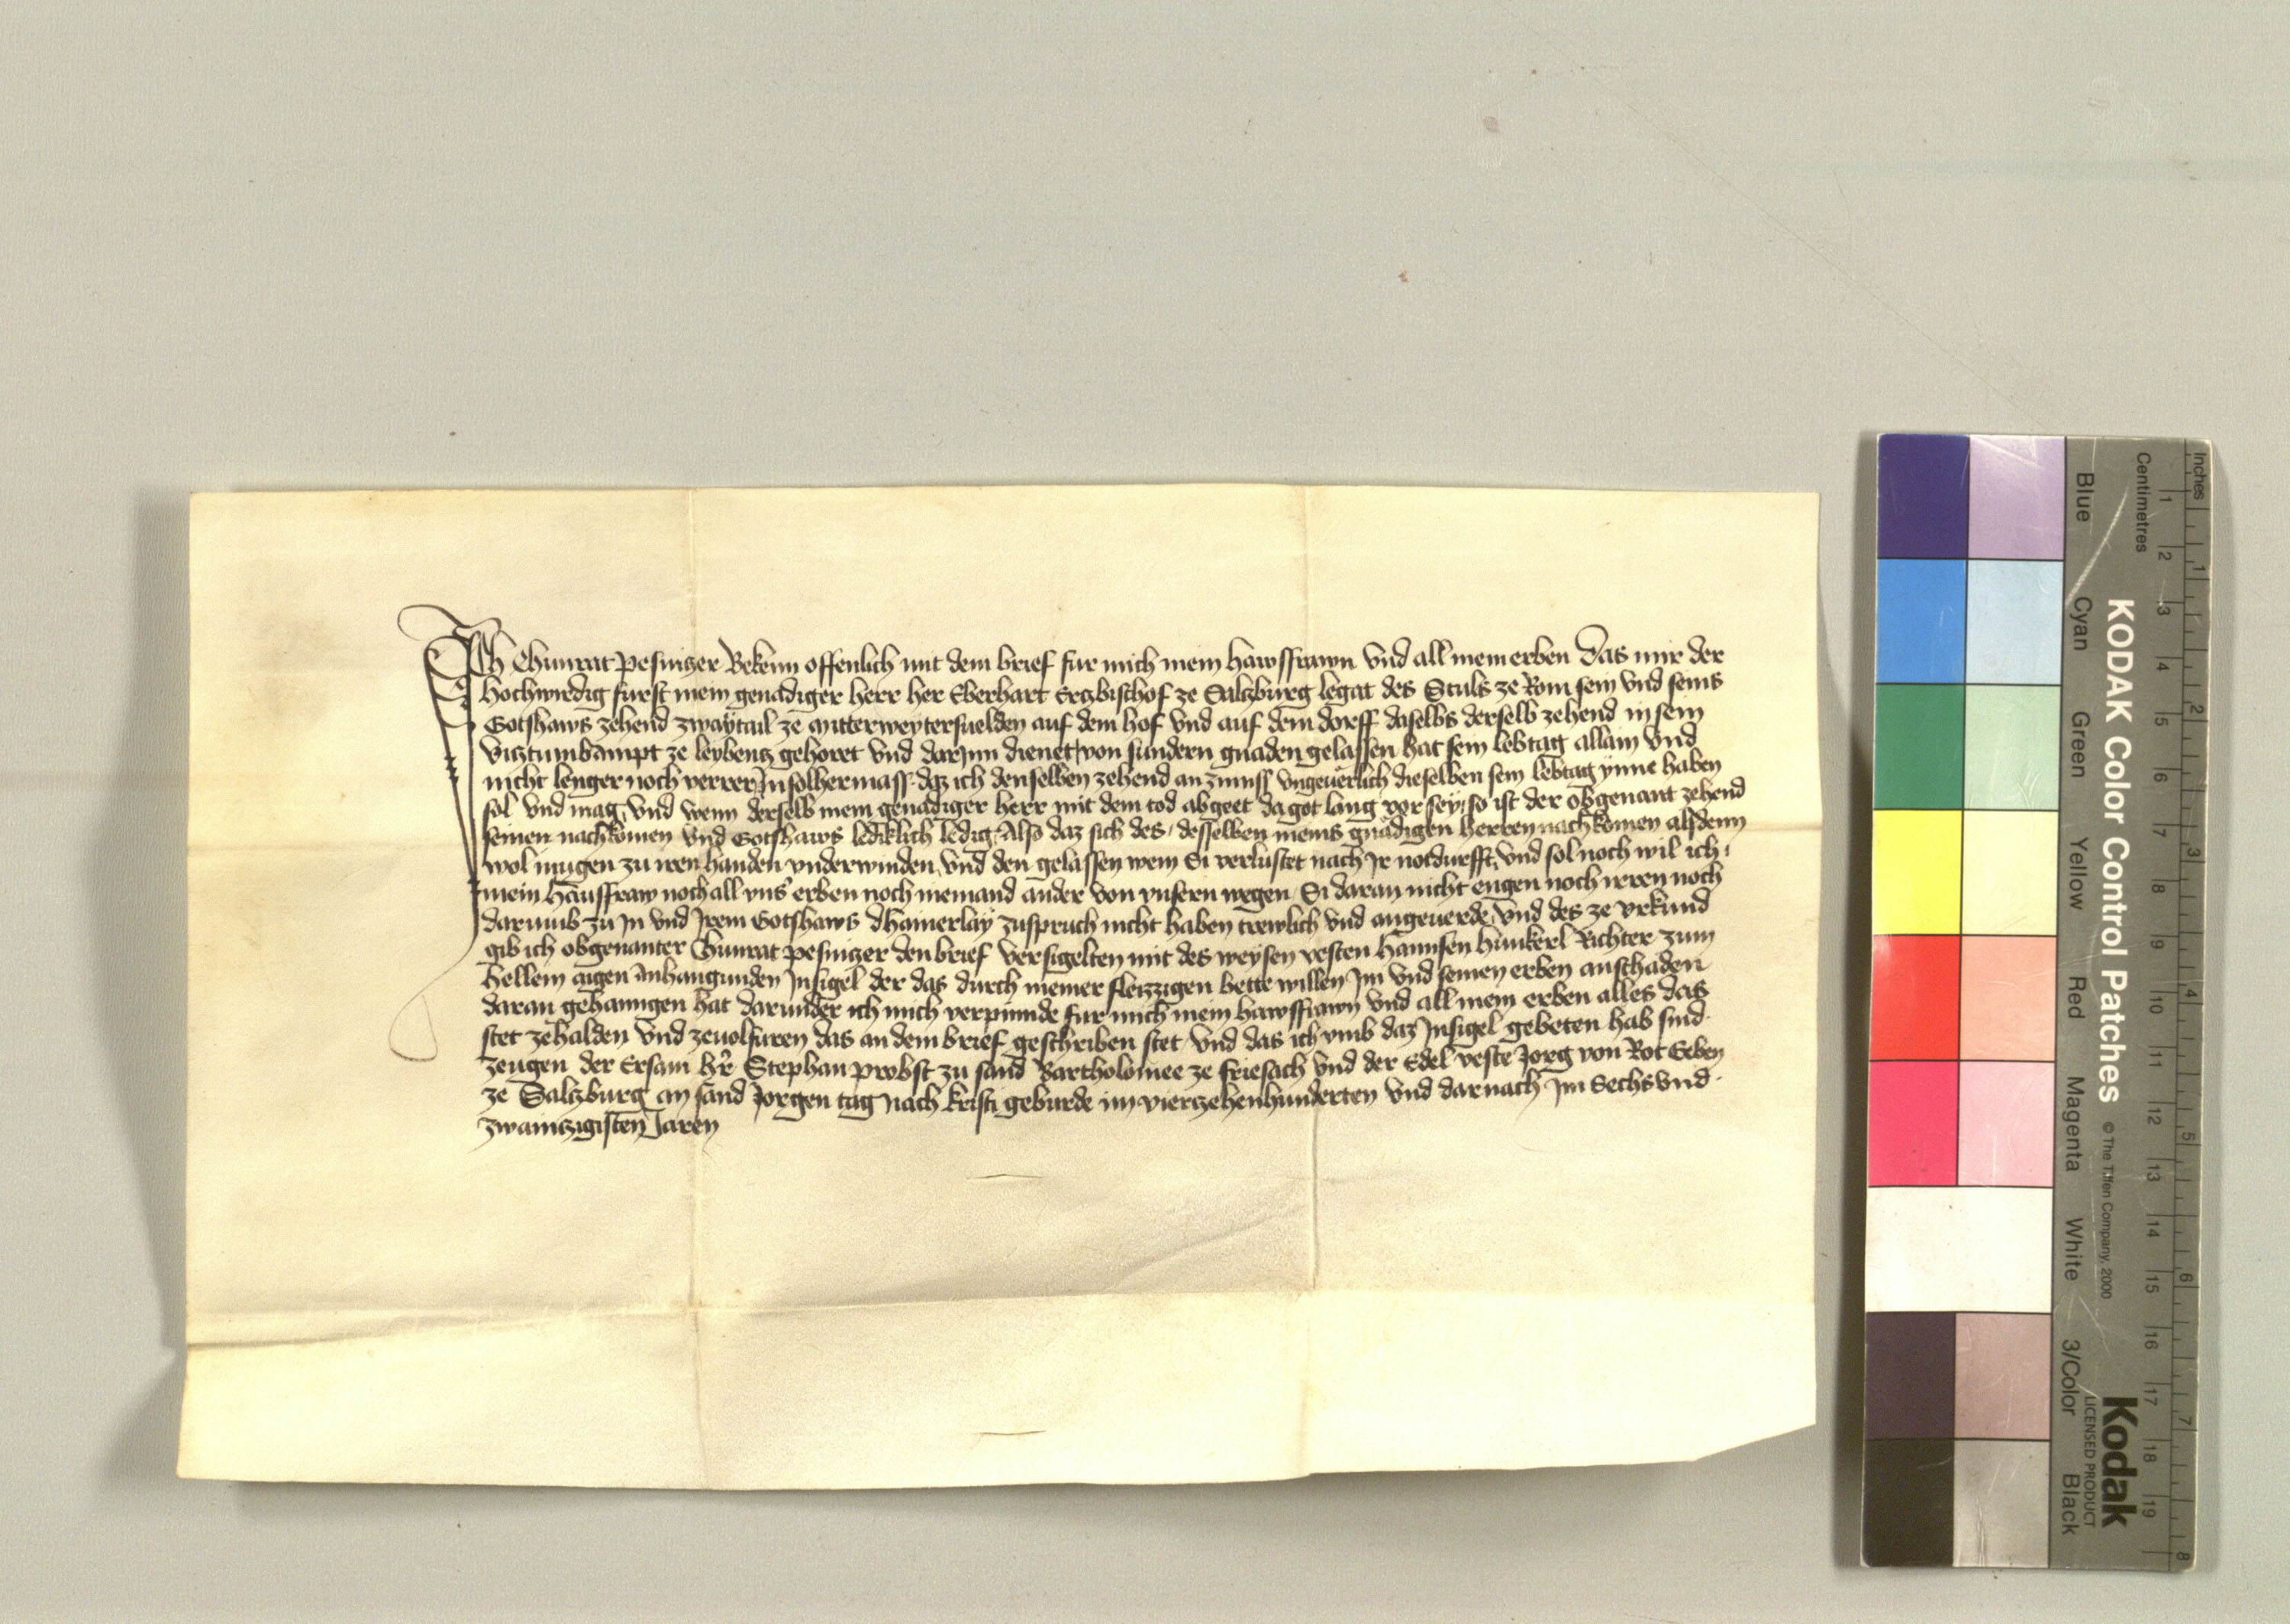 Ich Chunrat Pesnitzer Bekenn offenlich mit dem brief fur mich mein hawsffrawn vnd all mein erben Das mir der
hochwirdig furst mein genadiger herr her Eberhart Ertzbischof ze Saltzburg legat des Stuls ze Rom sein vnd seins
Gotshaws zehend zwaytail ze mitterweytersuelden auf dem hof vnd auf dem dorff daselbs derselb zehend in sein
viztumbampt ze leybentz gehoret vnd darjnn dienet von sundern gnaden gelassen hat sein lebtag allain vnd
nicht lenger noch verrer In solhermass daz ich denselben zehend an zinnss vngeuerlich dieselben sein lebtag ynne haben
sol vnd mag vnd wenn derselb mein genadiger herr mit dem tod abgeet da got lang vor sey so ist der obgenant zehend
seinen nachkomen vnd Gotshaws lediklich ledig Also daz sich des desselben meins gnadigen herren nachkomen alsdenn
wol mugen zu iren handen vnderwinden vnd den gelassen wem Si verlustet nach Ir notdurfft vnd sol noch wil ich
mein hausffraw noch all vns erben noch niemand ander von vnsern wegen Si daran nicht engen noch irren noch
darumb zu In vnd Irem Gotshaws dhainerlay zuspruch nicht haben trewlich vnd angeuerde vnd des ze vrkund
gib ich obgenanter Chunrat Pesnitzer den brief versigelten mit des weysen vesten Hannsen hunkerl Richter zum
hellem aigen anhangunden Insigel der das durch meiner fleizzigen bette willen Im vnd seinen erben anschaden
daran gehanngen hat darunder ich mich verpinde fur mich mein hawsffrawn vnd all mein erben alles das
stet zehalden vnd zeuolfuren das an dem brief geschriben stet vnd das ich vmb daz Insigel gebeten hab sind
zeugen der Ersam hr Stephan probst zu sand Bartholomee ze friesach vnd der Edel veste Jorg von Rot Geben
ze Saltzburg an sand Jorgen tag nach kristi geburde im vierzehenhunderten vnd darnach Im Sechsvnd
zwaintzigisten Jaren
Inches
Centimetres
1 2 3 4 5 6 7 8
1 2 3 4 5 6 7 8 9 10 11 12 13 14 15 16 17 18 19
KODAK Color Control Patches © The Tiffen Company, 2000
Kodak
LICENSED PRODUCT
Blue Cyan Green Yellow Red Magenta White 3/Color Black